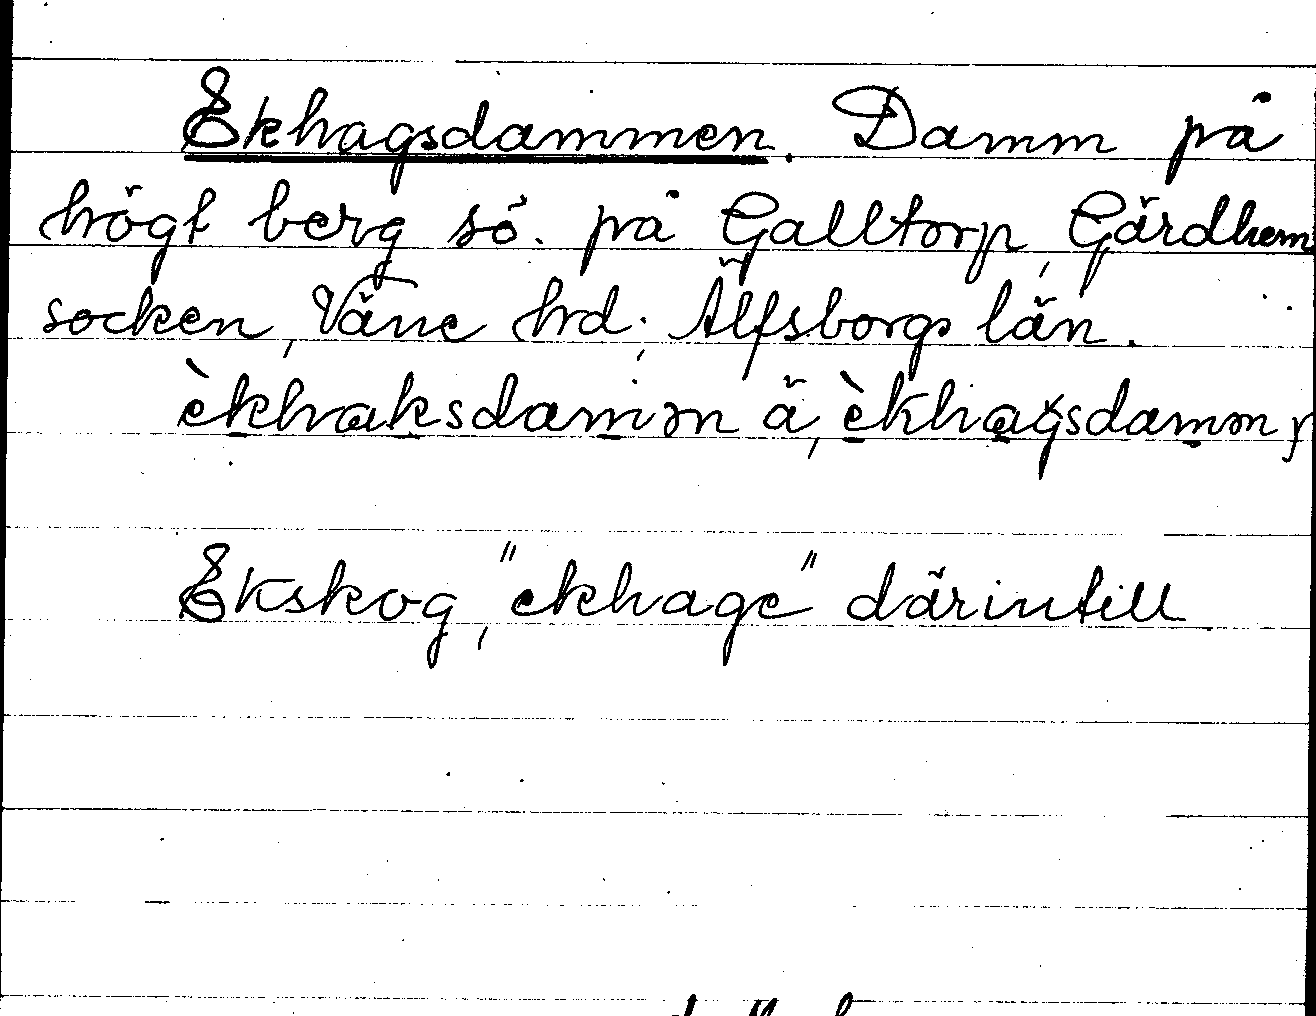 Ekhagsdammen. Damm på
högt berg sö. på Galltorp, Gärdhem
socken, Väne hrd; Älfsborgs län.
èkhaksdamm ä, èkhagsdamm,
Ekskog, "ekhage" därintill